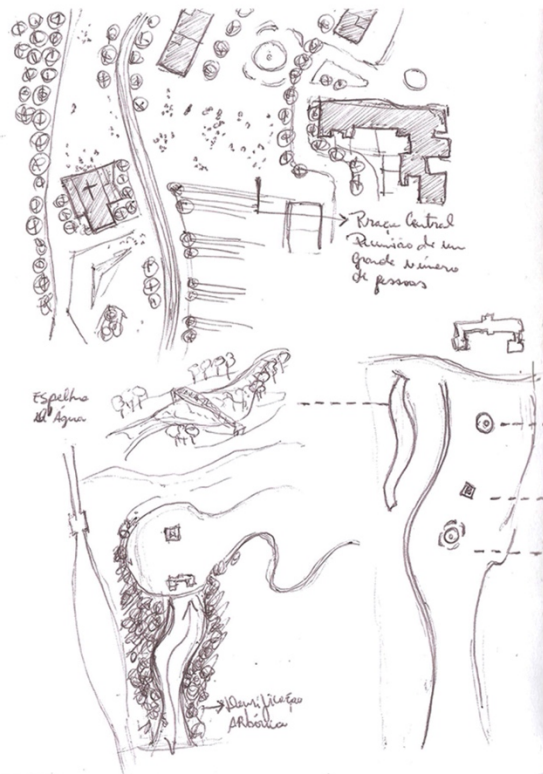 Praça Central
Reunião de um
grande número
de pessoas
Espelho
de Água
Densificação
Arbórica